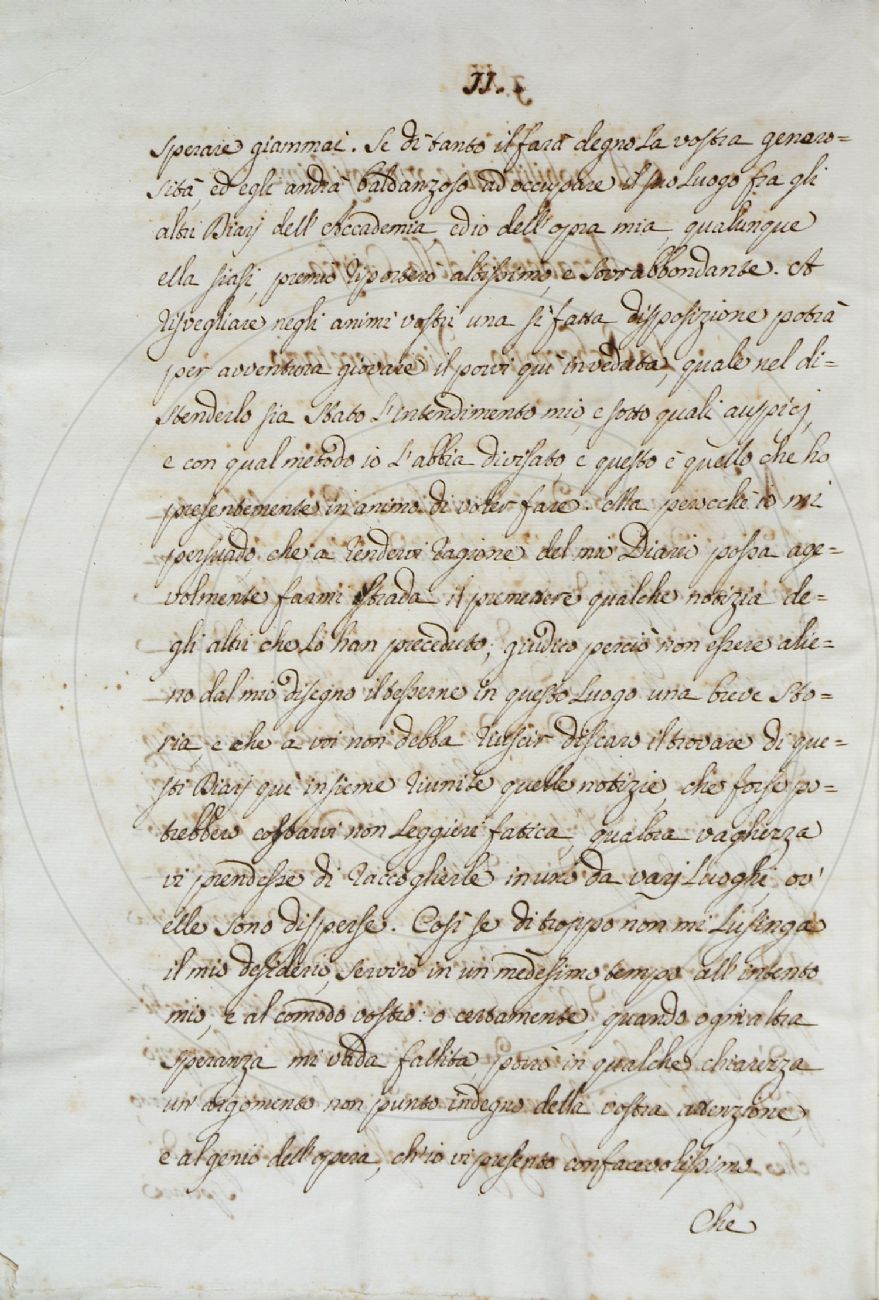 II.
sperare giammai. Se di tanto il farà degno la vostra genero=
sità, ed egli andrà baldanzoso ad occupare il suo luogo fra gli
altri Diarj dell'Accademia, ed io dell'opra mia, qualunque
ella siasi, premio riporterò altissimo, e sovrabbondante. A
risvegliare negli animi vostri una sì fatta disposizione potrà
per avventura giovare il porvi quì in veduta, quale nel di=
stenderlo sia stato l'intendimento mio, e sotto quali auspicj,
e con qual metodo io l'abbia divisato, e questo è quello che ho
presentemente in animo di voler fare. Ma perocchè io mi
persuado che a rendervi ragione del mio Diario possa age=
volmente farmi strada il premettere qualche notizia de=
gli altri che lo han preceduto; giudico perciò non essere alie=
no dal mio disegno il tesserne in questo luogo una breve sto=
ria, e che a voi non debba riuscir discaro il trovare di que=
sti Diarj quì insieme riunite quelle notizie, che forse po=
trebbero costarvi non leggieri fatica, qualora vaghezza
vi prendesse di raccoglierle in uno da varj luoghi, ov'
elle sono disperse. Così se di troppo non mi lusinga
il mio desiderio, servirò in un medesimo tempo all'intento
mio, e al comodo vostro: o certamente, quando ogni altra
speranza mi vada fallita porrò in qualche chiarezza
un argomento non punto indegno della vostra attenzione,
e al genio dell'opera, ch'io vi presento confacevolissimo.
Che